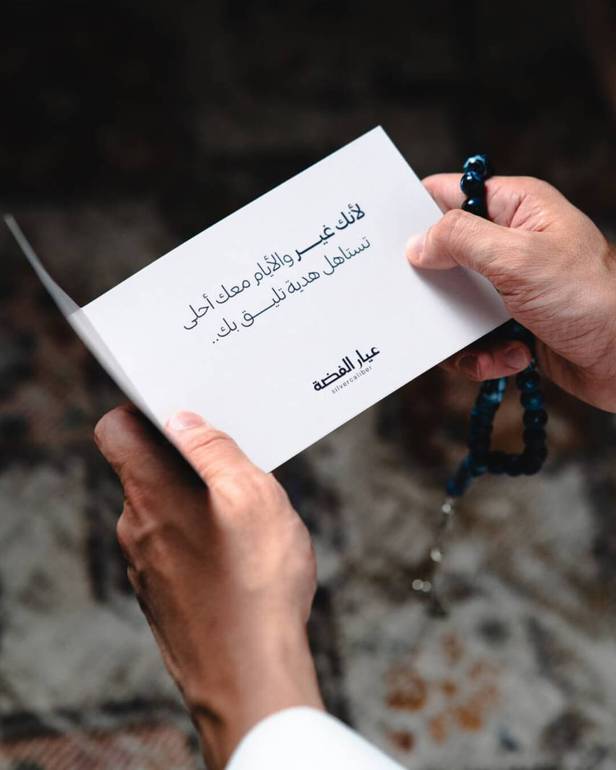 لأنك غير والأيام معك أحلى
تستاهل هدية تليق بك..
عيار الفضة
silvercaliber